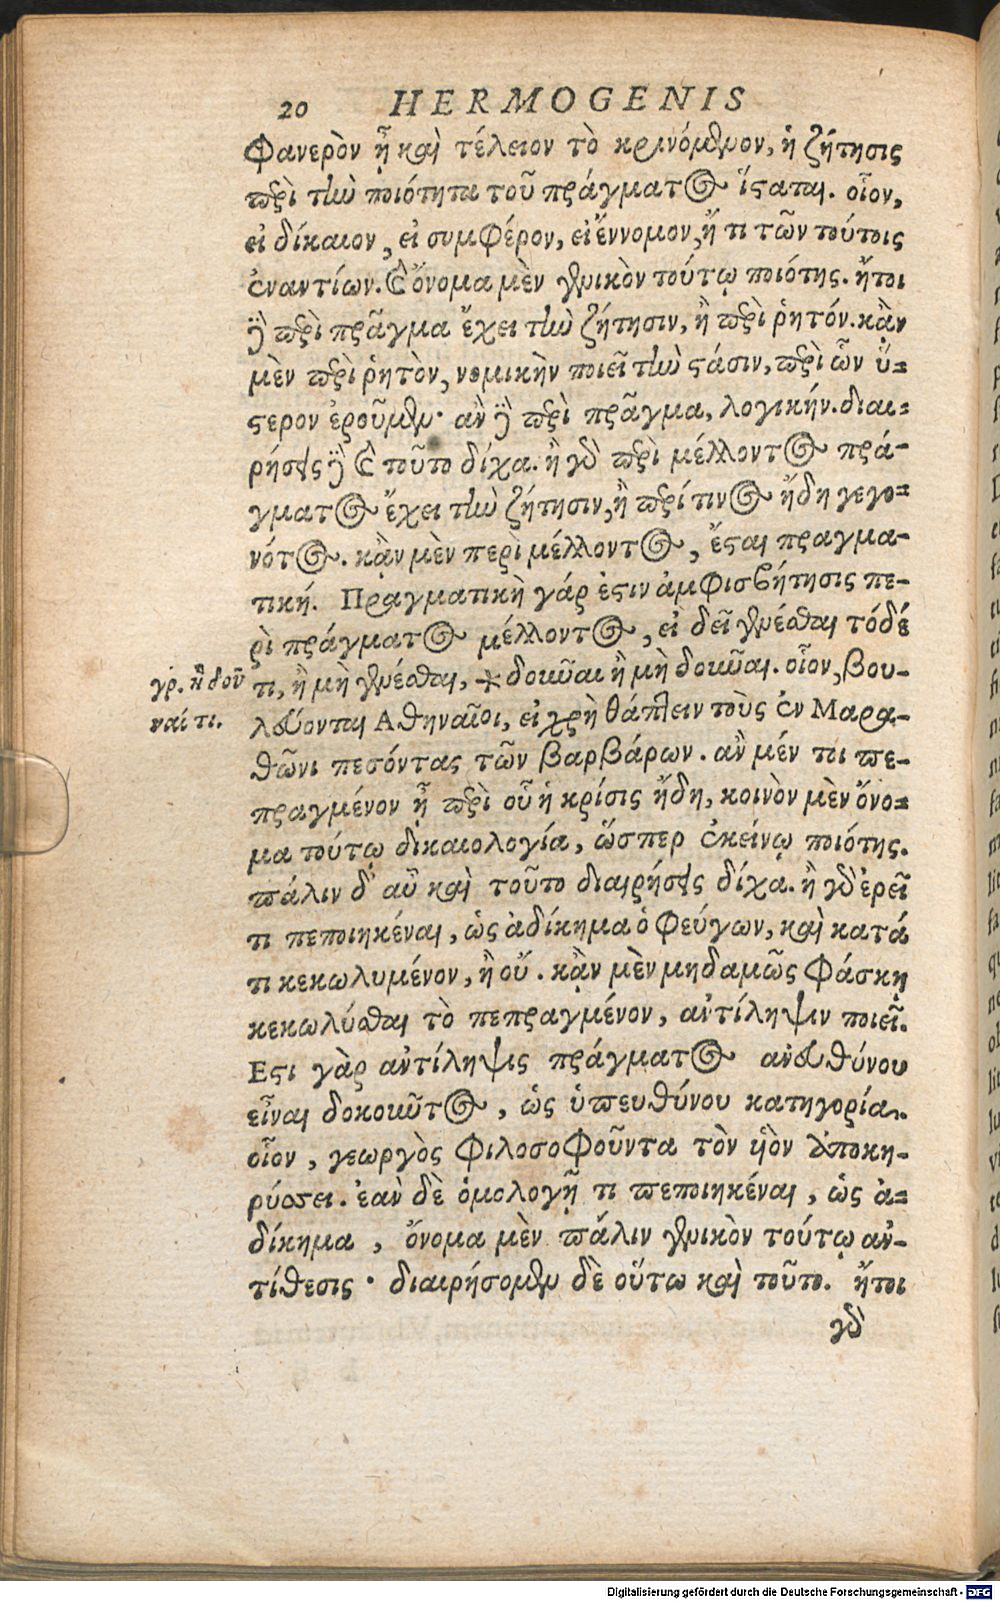 20 HERMOGENIS
φανερὸν ᾖ καὶ τέλειον τὸ κρινόμενον, ἡ ζήτησις
περὶ τὴν ποιότητα τοῦ πράγματος ἵσταται. οἷον,
εἰ δίκαιον, εἰ συμφέρον, εἰ ἔννομον, ἤ τι τῶν τούτοις
ἐναντίων. καὶ ὄνομα μὲν γενικὸν τούτῳ ποιότης. ἤτοι
γὰρ περὶ πρᾶγμα ἔχει τὴν ζήτησιν, ἢ περὶ ῥητόν. κἂν
μὲν περὶ ῥητὸν, νομικὴν ποιεῖ τὴν στάσιν, περὶ ὧν ὕ-
στερον ἐροῦμεν· ἂν γὰρ περὶ πρᾶγμα, λογικήν. διαι-
ρήσεις γὰρ καὶ τοῦτο δίχα. ἢ γὰρ περὶ μέλλοντος πρά-
γματος ἔχει τὴν ζήτησιν, ἢ περί τινος ἤδη γεγο-
νότος. κἂν μὲν περὶ μέλλοντος, ἔσται πραγμα-
τική. Πραγματικὴ γάρ ἐστιν ἀμφισβήτησις πε-
ρὶ πράγματος μέλλοντος, εἰ δεῖ γενέσθαι τόδέ
τι, ἢ μὴ γενέσθαι, * δοῦναι ἢ μὴ δοῦναι. οἷον, βου-
γρ. ἢ δοῦ
ναί τι.
λεύονται Ἀθηναῖοι, εἰ χρὴ θάπτειν τοὺς ἐν Μαρα-
θῶνι πεσόντας τῶν βαρβάρων. ἂν μέν τοι πε-
πραγμένον ᾖ περὶ οὗ ἡ κρίσις ἤδη, κοινὸν μὲν ὄνο-
μα τούτῳ δικαιολογία, ὥσπερ ἐκείνῳ ποιότης.
πάλιν δ᾽ αὖ καὶ τοῦτο διαιρήσεις δίχα. ἢ γὰρ ἐρεῖ
τι πεποιηκέναι, ὡς ἀδίκημα ὁ φεύγων, καὶ κατά
τι κεκωλυμένον, ἢ οὔ. κἂν μὲν μηδαμῶς φάσκῃ
κεκωλύσθαι τὸ πεπραγμένον, ἀντίληψιν ποιεῖ.
Εστι γὰρ ἀντίληψις πράγματος ἀνευθύνου
εἶναι δοκοῦντος, ὡς ὑπευθύνου κατηγορία.
οἷον, γεωργὸς φιλοσοφοῦντα τὸν υἱὸν ἀποκη-
ρύσσει. ἐὰν δὲ ὁμολογῇ τι πεποιηκέναι, ὡς ἀ-
δίκημα, ὄνομα μὲν πάλιν γενικὸν τούτῳ ἀν-
τίθεσις· διαιρήσομεν δὲ οὕτω καὶ τοῦτο. ἤτοι
γὰρ
Digitalisierung gefördert durch die Deutsche Forschungsgemeinschaft - DFG